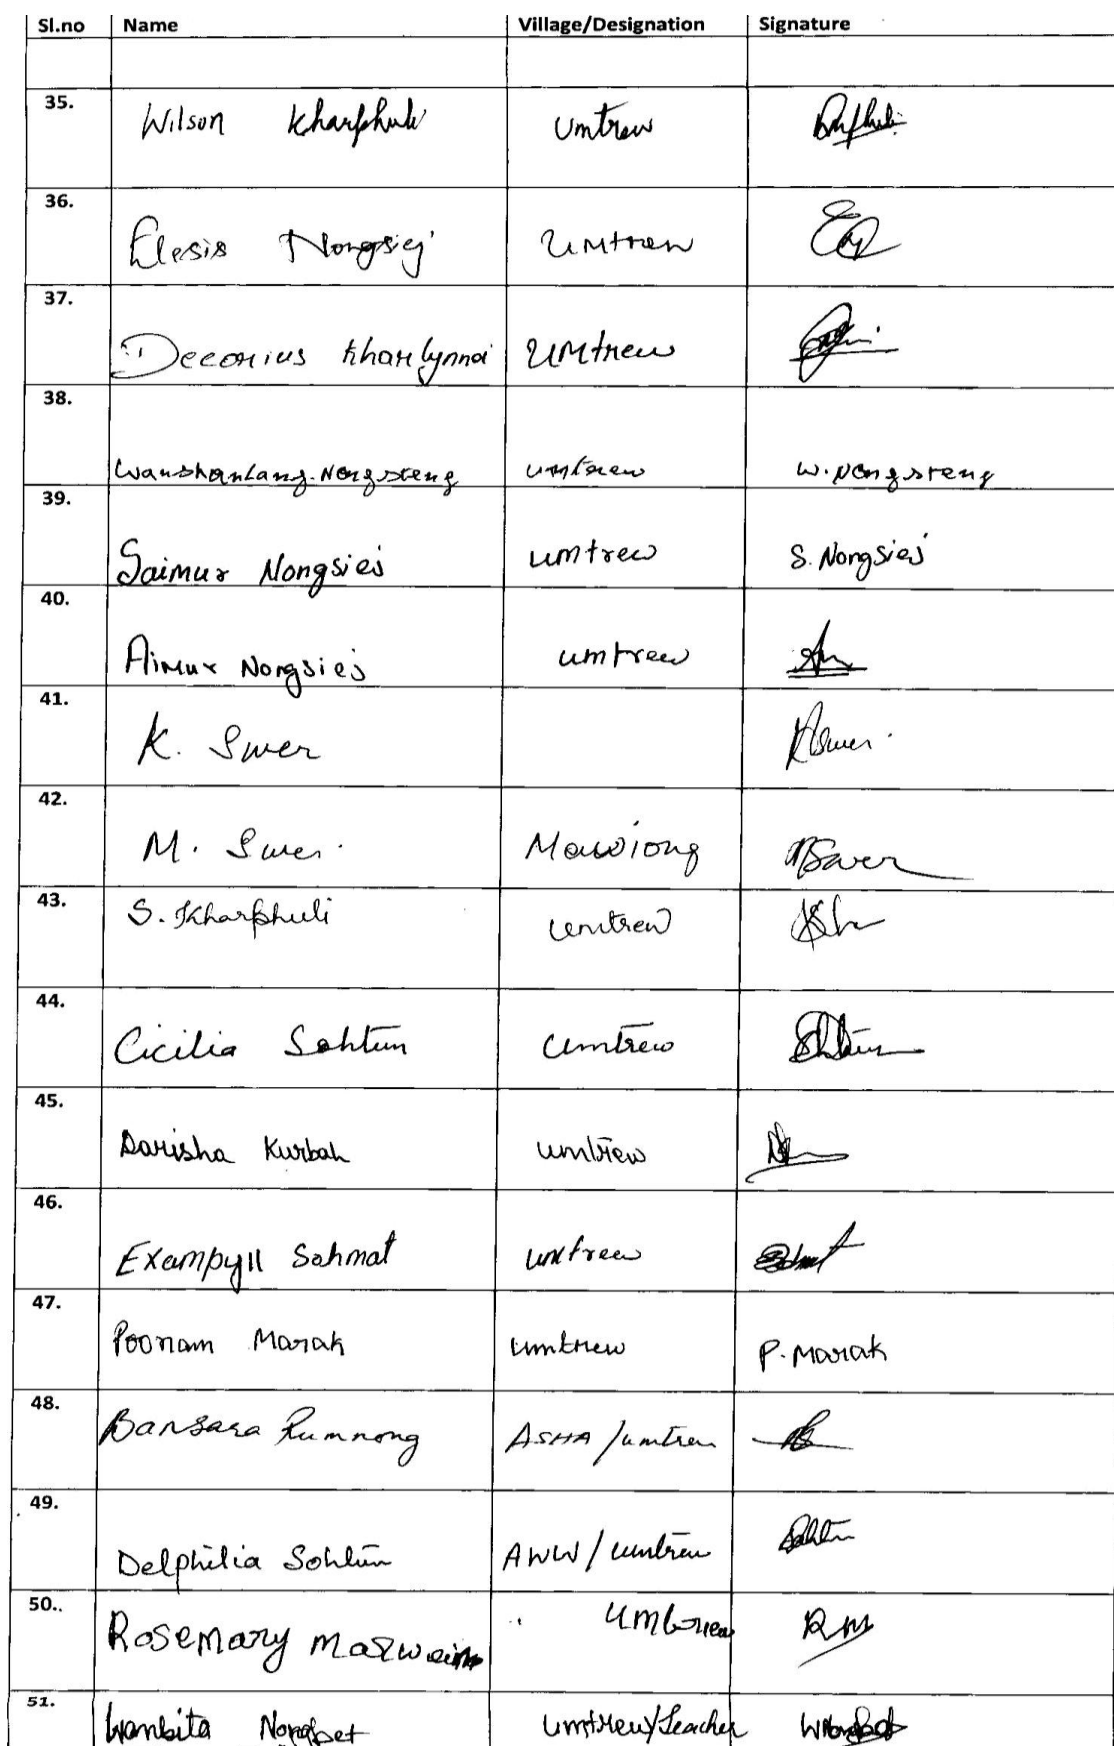 Sl.no Name Village/Designation Signature
35. Wilson Kharphuli Umtrew
36. Elesis Nongsiej Umtrew
37. Decorius Kharlynnoi Umtrew
38. Wanshanlang.Nongsteng umtrew W. Nongsteng
39. Saimur Nongsiej umtrew S. Nongsiej
40. Aimur Nongsiej umtrew
41. K. Swer KSwer.
42. M. Swer. Mawiong MSwer
43. S. Kharphuli umtrew
44. Cicilia Sohtun Umtrew Sohtun
45. Darisha Kurbah umtrew
46. Exampyll Sohmat umtrew
47. Poonam Marak umtrew P. Marak
48. Bansara Rumnong ASHA/umtrew
49. Delphilia Sohtun AWW/umtrew Sohtun
50.. Rosemary Umtrew RM
51. Wanbita Nongbet Umtrew/Teacher WNongbet